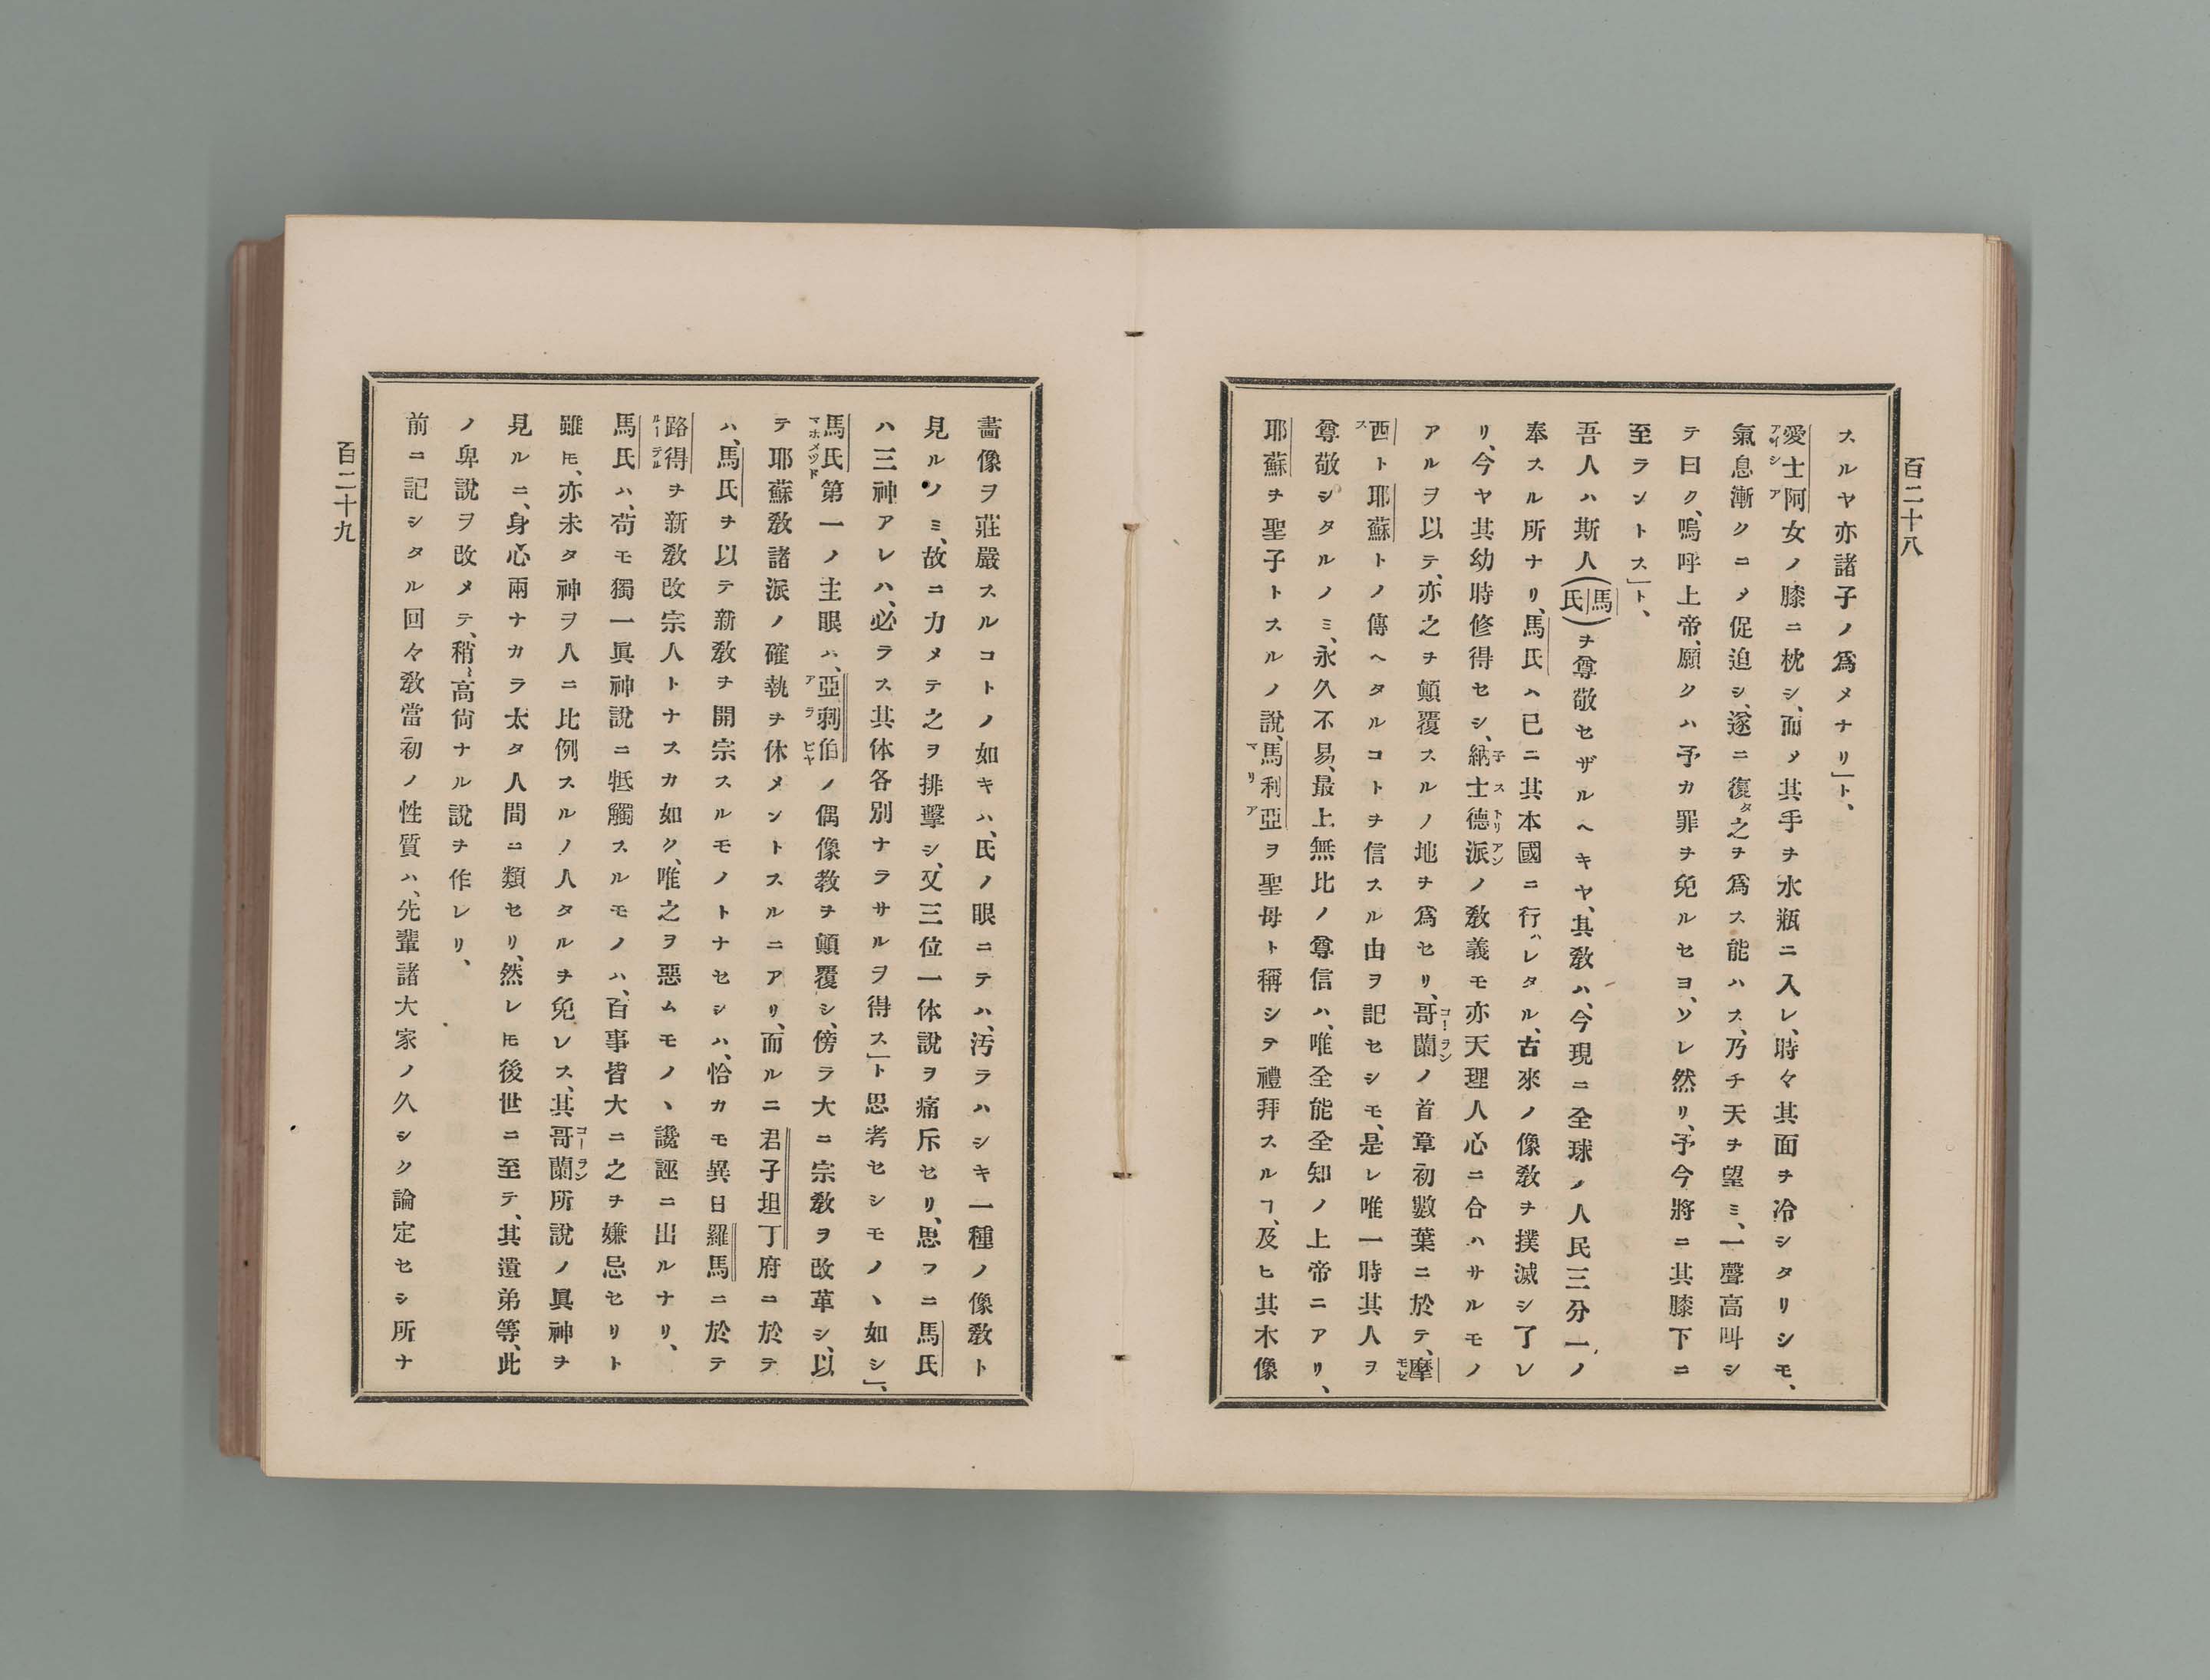 百二十八
スルヤ亦諸子ノ爲メナリ」ト、
愛士阿女ノ膝ニ枕シ、而メ其手ヲ水瓶ニ入レ、時々其面ヲ冷シタリシモ、
氣息漸クニメ促迫シ、遂ニ復タ之ヲ爲ス能ハス、乃チ天ヲ望ミ、一聲高叫シ
テ曰ク、嗚呼上帝、願クハ予カ罪ヲ免ルセヨ、ソレ然リ、予今將ニ其膝下ニ
至ラントス」ト、
吾人ハ斯人(馬氏)ヲ尊敬セザルヘキヤ、其敎ハ、今現ニ全球ノ人民三分一ノ
奉スル所ナリ、馬氏ハ已ニ其本國ニ行ハレタル、古來ノ像敎ヲ撲滅シ了レ
リ、今ヤ其幼時修得セシ、納士德派ノ敎義モ亦天理人心ニ合ハサルモノ
アルヲ以テ、亦之ヲ顛覆スルノ地ヲ爲セリ、哥蘭ノ首章初數葉ニ於テ、摩
西ト耶蘇トノ傳ヘタルコトヲ信スル由ヲ記セシモ、是レ唯一時其人ヲ
尊敬シタルノミ、永久不易、最上無比ノ尊信ハ、唯全能全知ノ上帝ニアリ、
耶蘇ヲ聖子トスルノ說、馬利亞ヲ聖母ト稱シテ禮拜スルヿ、及ヒ其木像
畵像ヲ莊嚴スルコトノ如キハ、氏ノ眼ニテハ、汚ラハシキ一種ノ像敎ト
見ルノミ、故ニ力メテ之ヲ排擊シ、又三位一体說ヲ痛斥セリ、思フニ馬氏
ハ三神アレハ、必ラス其体各別ナラサルヲ得ス」ト思考セシモノヽ如シ」、
馬氏第一ノ主眼ハ、亞剌伯ノ偶像敎ヲ顛覆シ、傍ラ大ニ宗敎ヲ改革シ、以
テ耶蘇敎諸派ノ確執ヲ休メントスルニアリ、而ルニ君子坦丁府ニ於テ
ハ、馬氏ヲ以テ新敎ヲ開宗スルモノトナセシハ、恰カモ異日羅馬ニ於テ
路得ヲ新敎改宗人トナスカ如ク、唯之ヲ惡ムモノヽ讒誣ニ出ルナリ、
馬氏ハ、苟モ獨一眞神說ニ牴觸スルモノハ、百事皆大ニ之ヲ嫌忌セリト
雖𪜈、亦未タ神ヲ人ニ比例スルノ人タルヲ免レス、其哥蘭所說ノ眞神ヲ
見ルニ、身心兩ナカラ太タ人間ニ類セリ、然レ𪜈後世ニ至テ、其遺弟等、此
ノ卑說ヲ改メテ、稍〻高尙ナル說ヲ作レリ、
前ニ記シタル回々敎當初ノ性質ハ、先輩諸大家ノ久シク論定セシ所ナ
百二十九